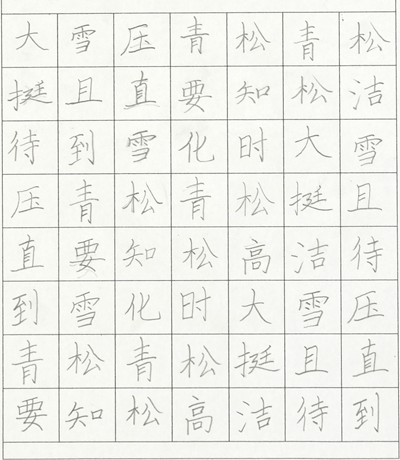 大雪压青松青松
挺且直要知松洁
待到雪化时大雪
压青松青松挺且
直要知松高洁待
到雪化时大雪压
青松青松挺且直
要知松高洁待到